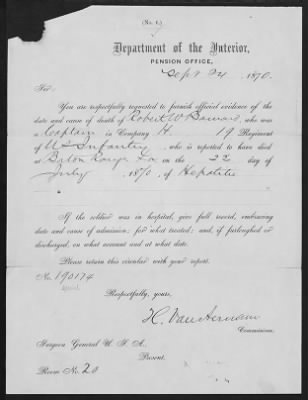 (No. 6.)
Department of the Interior,
PENSION OFFICE,
Sept 24, 1870.
Sir:
You are respectfully requested to furnish official evidence of the
date and cause of death of Robert W. , who was
a Captain in Company H. 19 Regiment
of U S Infantry, who is reported to have died
at Baton Rouge La on the 22 day of
July, 1870, of Hepatitis
If the soldier was in hospital, give full record, embracing
date and cause of admission; for what treated; and, if furloughed or
discharged, on what account and at what date.
Please return this circular with your report.
No. 190174
Respectfully, yours,
H. Van Aernam
Commissioner.
Surgeon General U. S. A.
Present.
Room No. 20